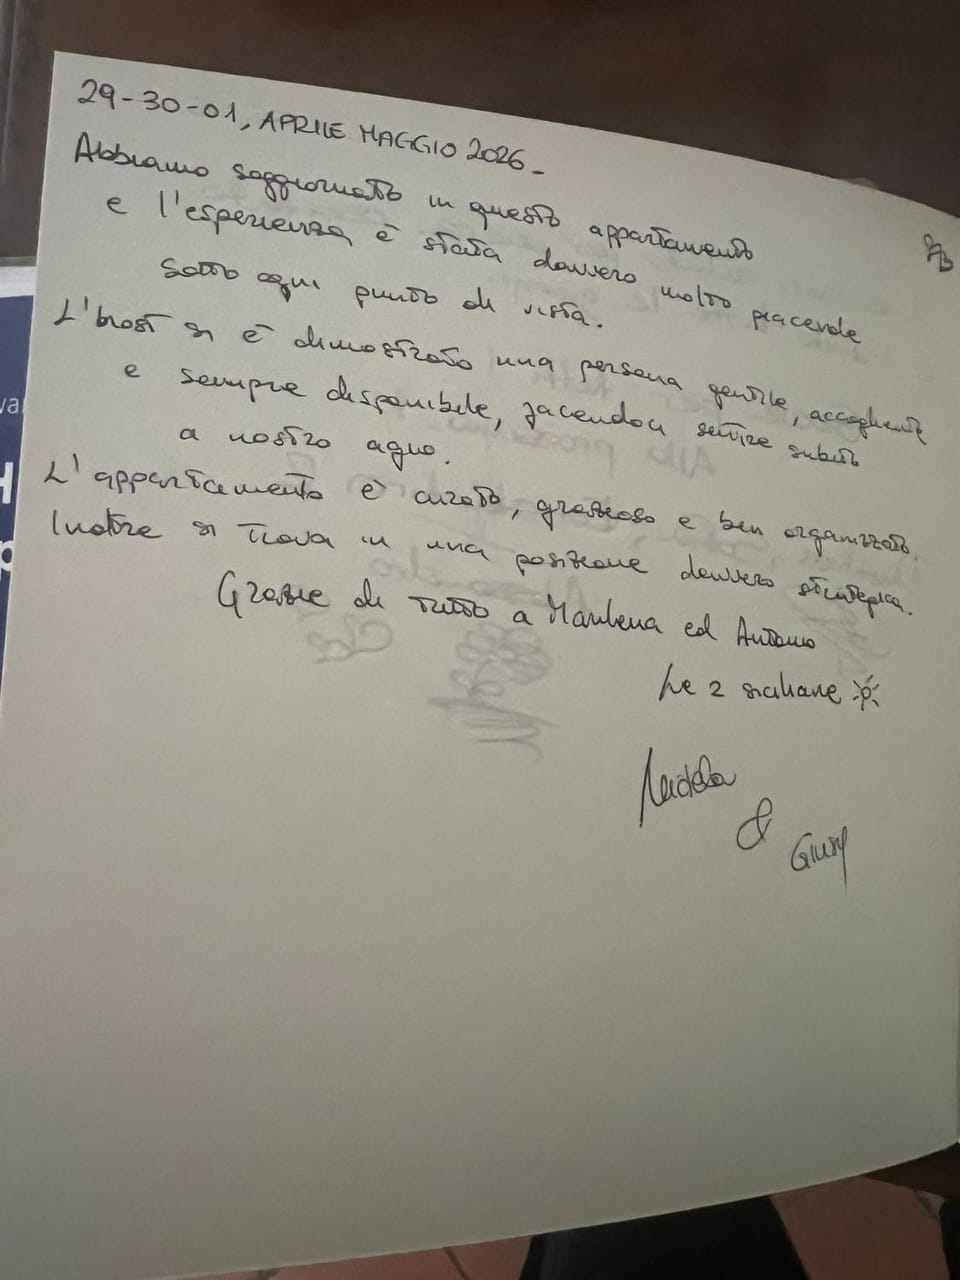 29-30-01, APRILE MAGGIO 2026_
Abbiamo soggiornato in questo appartamento
e l'esperienza è stata davvero molto piacevole
sotto ogni punto di vista.
L'host si è dimostrato una persona gentile, accogliente
e sempre disponibile, facendoci sentire subito
a nostro agio.
L'appartamento è curato, grazioso e ben organizzato.
Inoltre si trova in una posizione davvero strategica.
Grazie di tutto a Marilena ed Antonio
Le 2 siciliane
&
Giusy